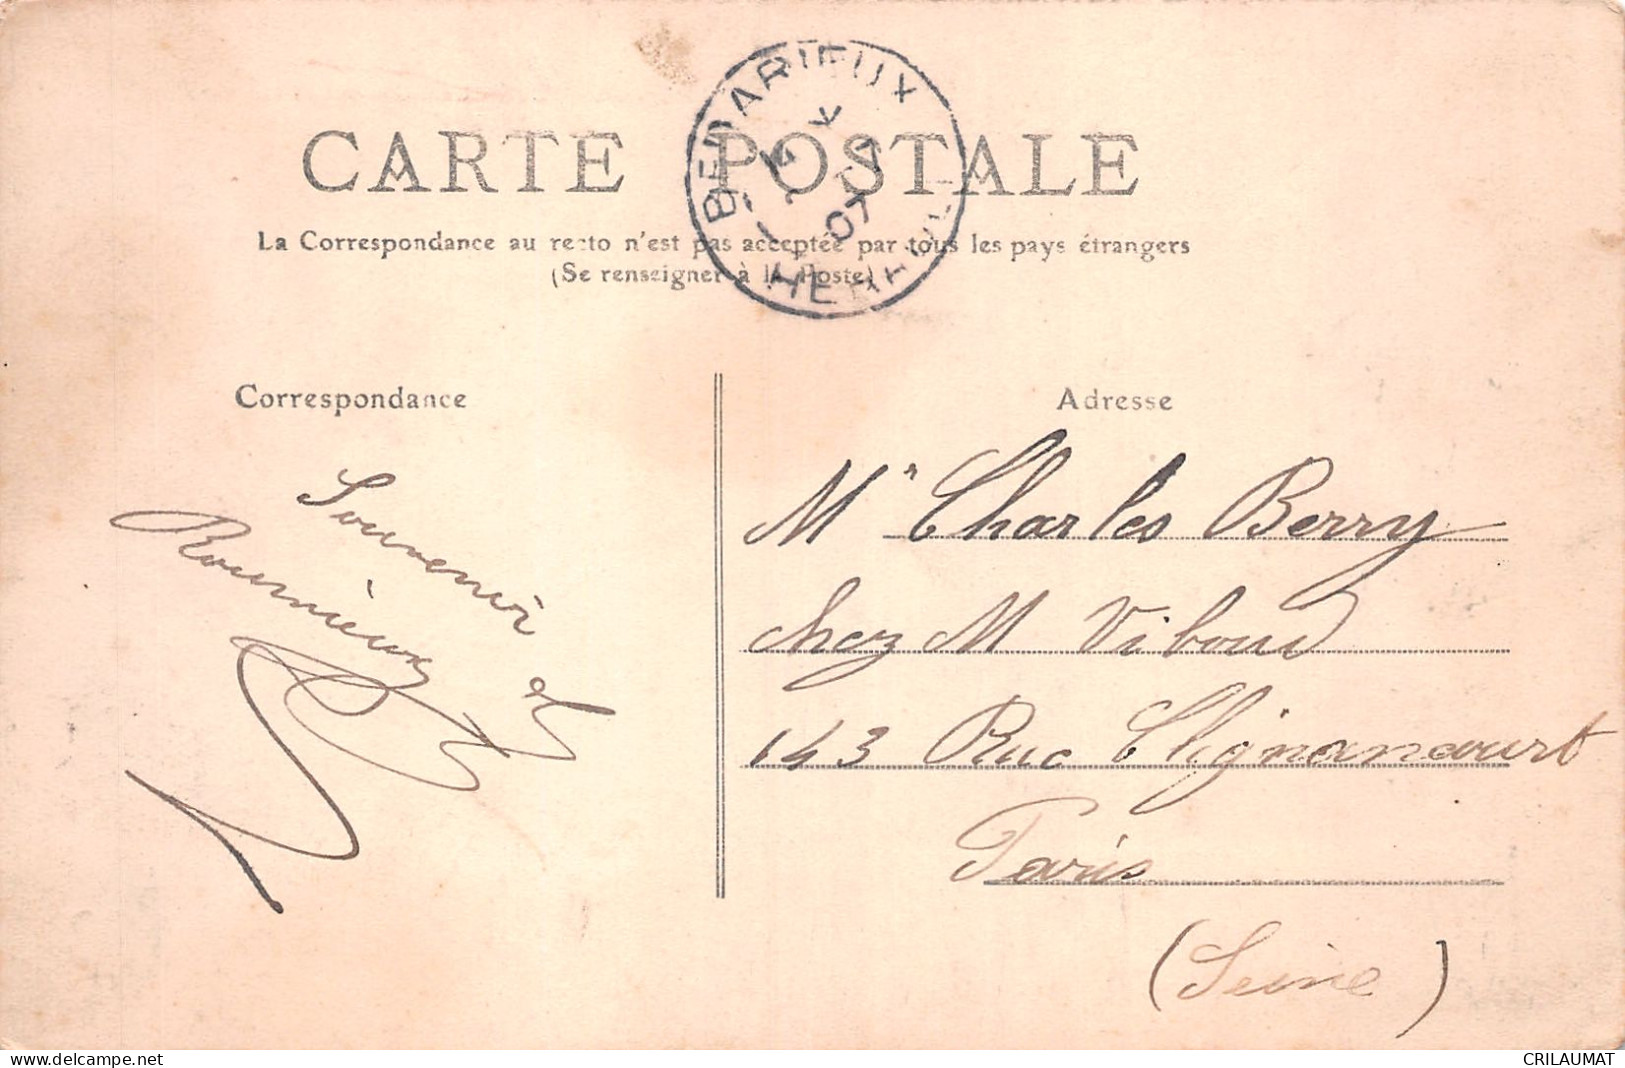 CARTE POSTALE
BEDARIEUX
07
HERAULT
La Correspondance au recto n'est pas acceptée par tous les pays étrangers
(Se renseigner à la Poste)
Correspondance
Adresse
Souvenir de
Roumieux
Mr Charles Berry
chez M Viboud
143 Rue Clignancourt
Paris
(Seine)
www.delcampe.net
CRILAUMAT